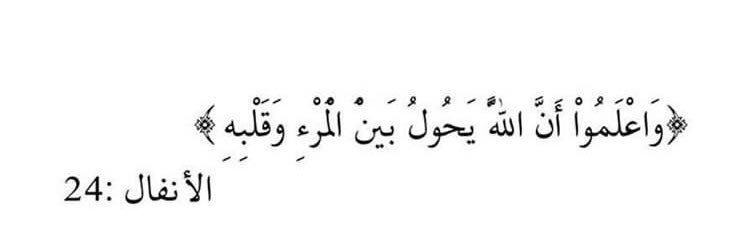 ﴿وَاعْلَمُواْ أَنَّ اللّهَ يَحُولُ بَيْنَ الْمَرْءِ وَقَلْبِهِ ﴾
الأنفال :24